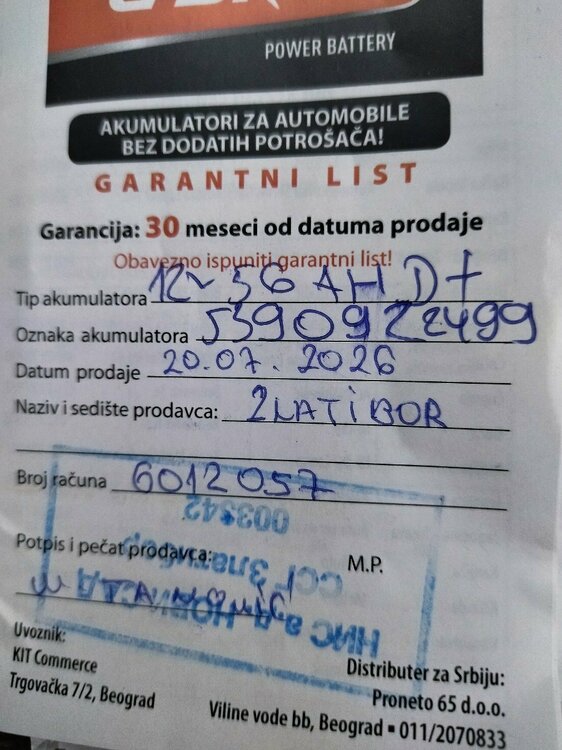 POWER BATTERY
AKUMULATORI ZA AUTOMOBILE
BEZ DODATIH POTROŠAČA!
GARANTNI LIST
Garancija: 30 meseci od datuma prodaje
Obavezno ispuniti garantni list!
Tip akumulatora 12V 56 AH D+
Oznaka akumulatora 5390922499
Datum prodaje 20.07.2026
Naziv i sedište prodavca: ZLATIBOR
Broj računa 6012057
003342
Potpis i pečat prodavca:
M.P.
ССГ Златибор
НИС а.д. НОВИ САД
Uvoznik:
KIT Commerce
Trgovačka 7/2, Beograd
Distributer za Srbiju:
Proneto 65 d.o.o.
Viline vode bb, Beograd ▪ 011/2070833